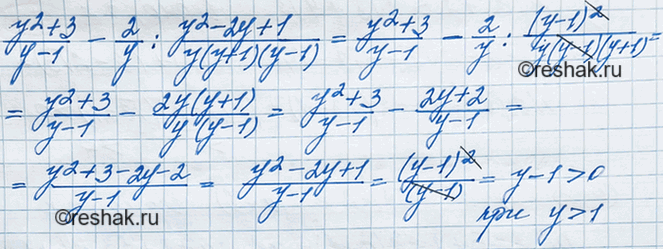 (y²+3)/(y-1) - 2/y : (y²-2y+1)/(y(y+1)(y-1)) = (y²+3)/(y-1) - 2/y : (y-1)²/(y(y-1)(y+1)) =
©reshak.ru
= (y²+3)/(y-1) - 2y(y+1)/(y(y-1)) = (y²+3)/(y-1) - (2y+2)/(y-1) =
= (y²+3-2y-2)/(y-1) = (y²-2y+1)/(y-1) = (y-1)²/(y-1) = y-1>0
©reshak.ru
при y>1